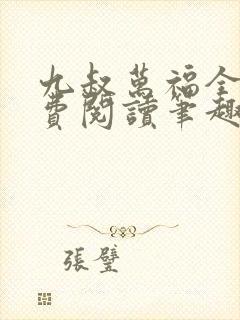 九叔萬福全
費閱讀筆趣
張璧